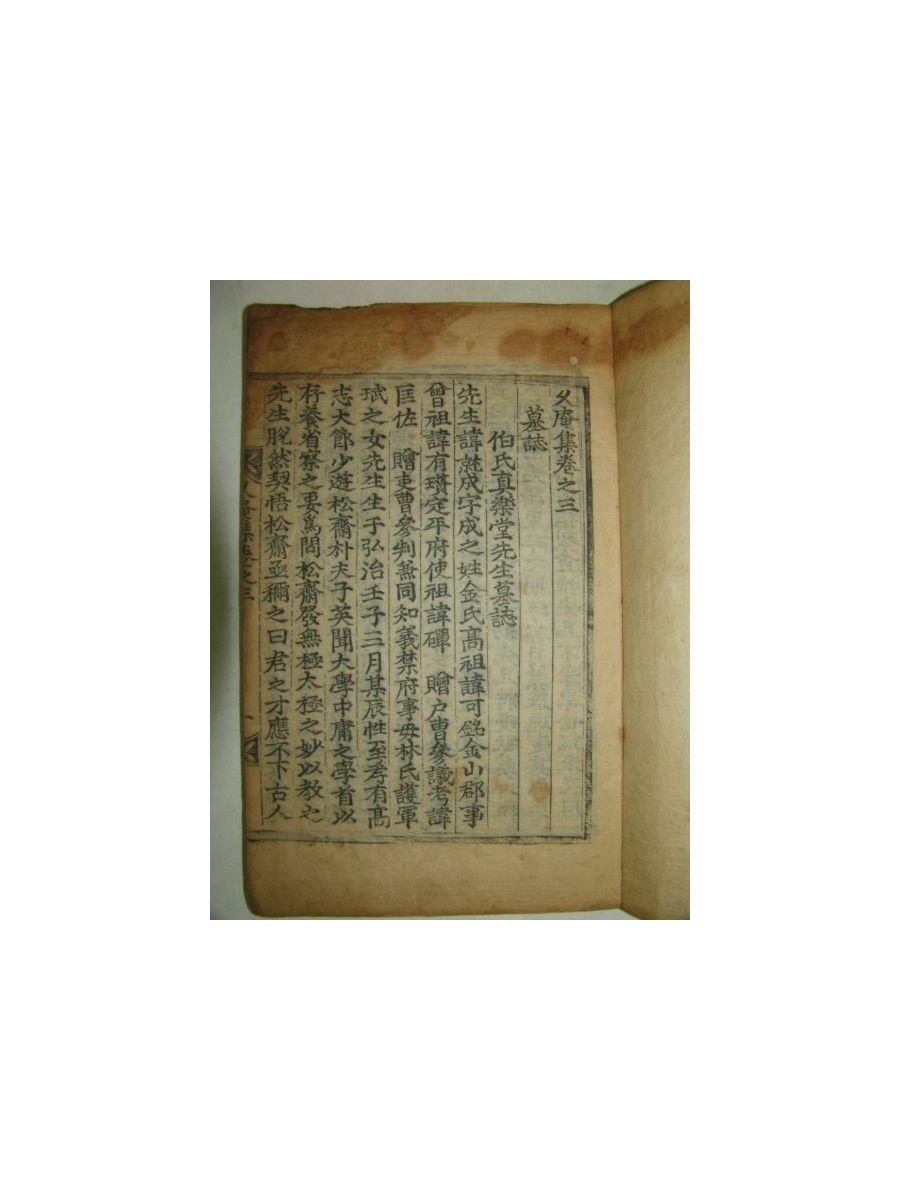 久庵集卷之三
墓誌
伯氏真樂堂先生墓誌
先生諱就成字成之姓金氏高祖諱可銘金山郡事
曾祖諱有瓚定平府使祖諱磾 贈户曹參議考諱
匡佐 贈吏曹參判兼同知義禁府事毋林氏護軍
珷之女先生生于弘治壬子三月某辰性至孝有高
志大節少遊松齋朴夫子英聞大學中庸之學首以
存養省察之要爲問松齋發無極太極之妙以教之
先生脫然契悟松齋亟稱之曰君之才應不下古人